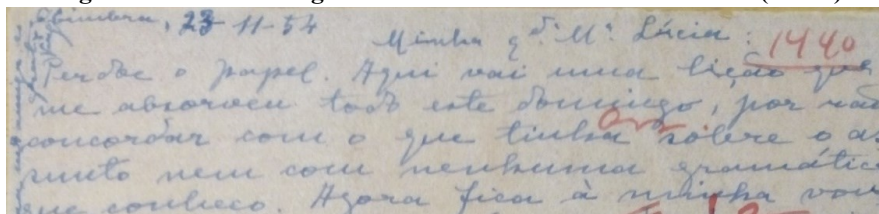 Coimbra, 23-11-54
Minha q.da M.a Lúcia:
1440
Perdoe o papel. Aqui vai uma lição que
me absorveu todo este domingo, por não
concordar com o que tinha sobre o as
sunto nem com nenhuma gramátic
que conheço. Agora fica à minha von